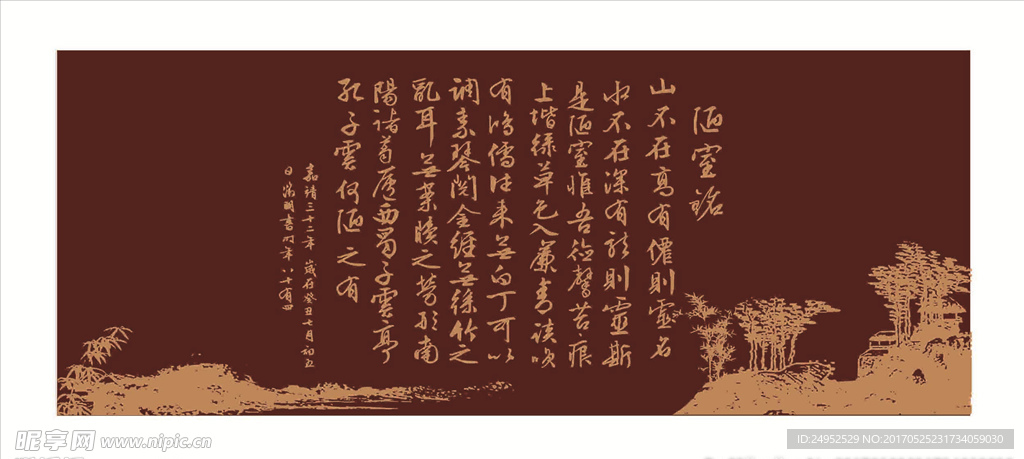 陋室銘
山不在高有僊則靈名
水不在深有龍則靈斯
是陋室惟吾德馨苔痕
上堦綠草色入簾青談笑
有鴻儒往來無白丁可以
調素琴閱金經無絲竹之
亂耳無案牘之勞形南
陽諸葛廬西蜀子雲亭
孔子雲何陋之有
嘉靖三十二年歲在癸丑七月初五
日徵明書時年八十有四
昵享网 www.nipic.cn
ID:24952529 NO:20170525231734059030